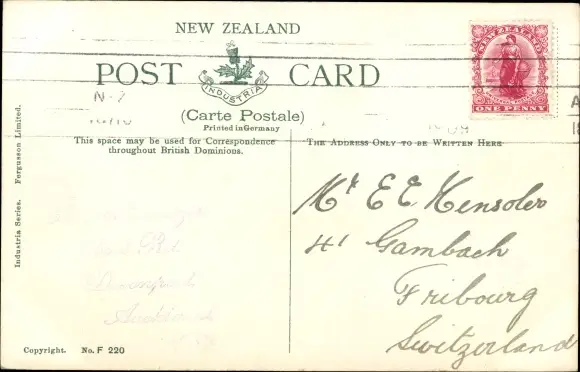 NEW ZEALAND
POST CARD
INDUSTRIA
(Carte Postale)
Printed in Germany
This space may be used for Correspondence
throughout British Dominions.
THE ADDRESS ONLY TO BE WRITTEN HERE
NEW ZEALAND
ONE PENNY
Mr E E Hensoler
41 Gambach
Fribourg
Switzerland
Industria Series. Fergusson Limited.
Copyright. No. F 220